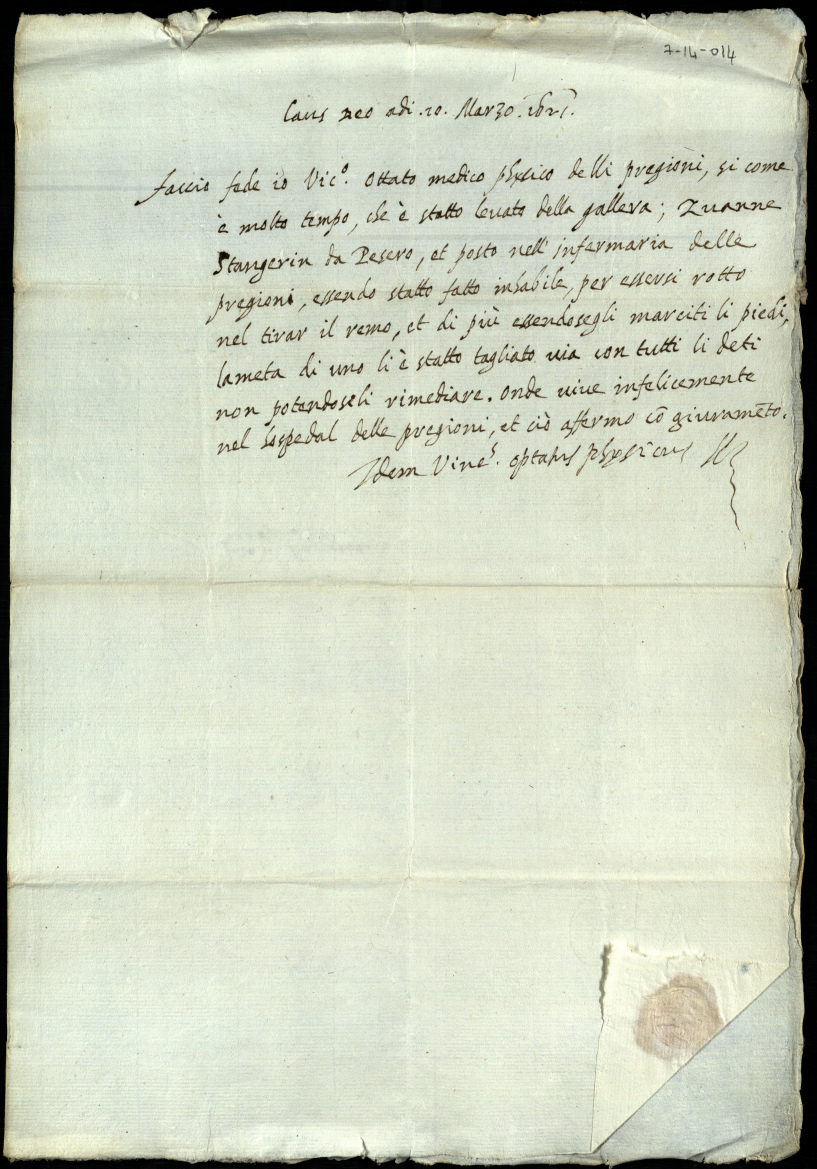 7-14-014
Laus Deo adi .10. Marzo .1621.
Faccio fede io Vic.º Ottato medico physico delli pregioni, si come
è molto tempo, che è statto levato della gallera; Zuanne
Stangerin da Pesero, et posto nell'infermaria delle
pregioni, essendo statto fatto inhabile, per essersi rotto
nel tirar il remo, et di più essendosegli marciti li piedi,
la meta di uno li è statto tagliato via con tutti li deti
non potendoseli rimediare. onde vive infelicemente
nel hospedal delle pregioni, et ciò affermo cō giuramēto.
Idem Vine.s optatus physicus